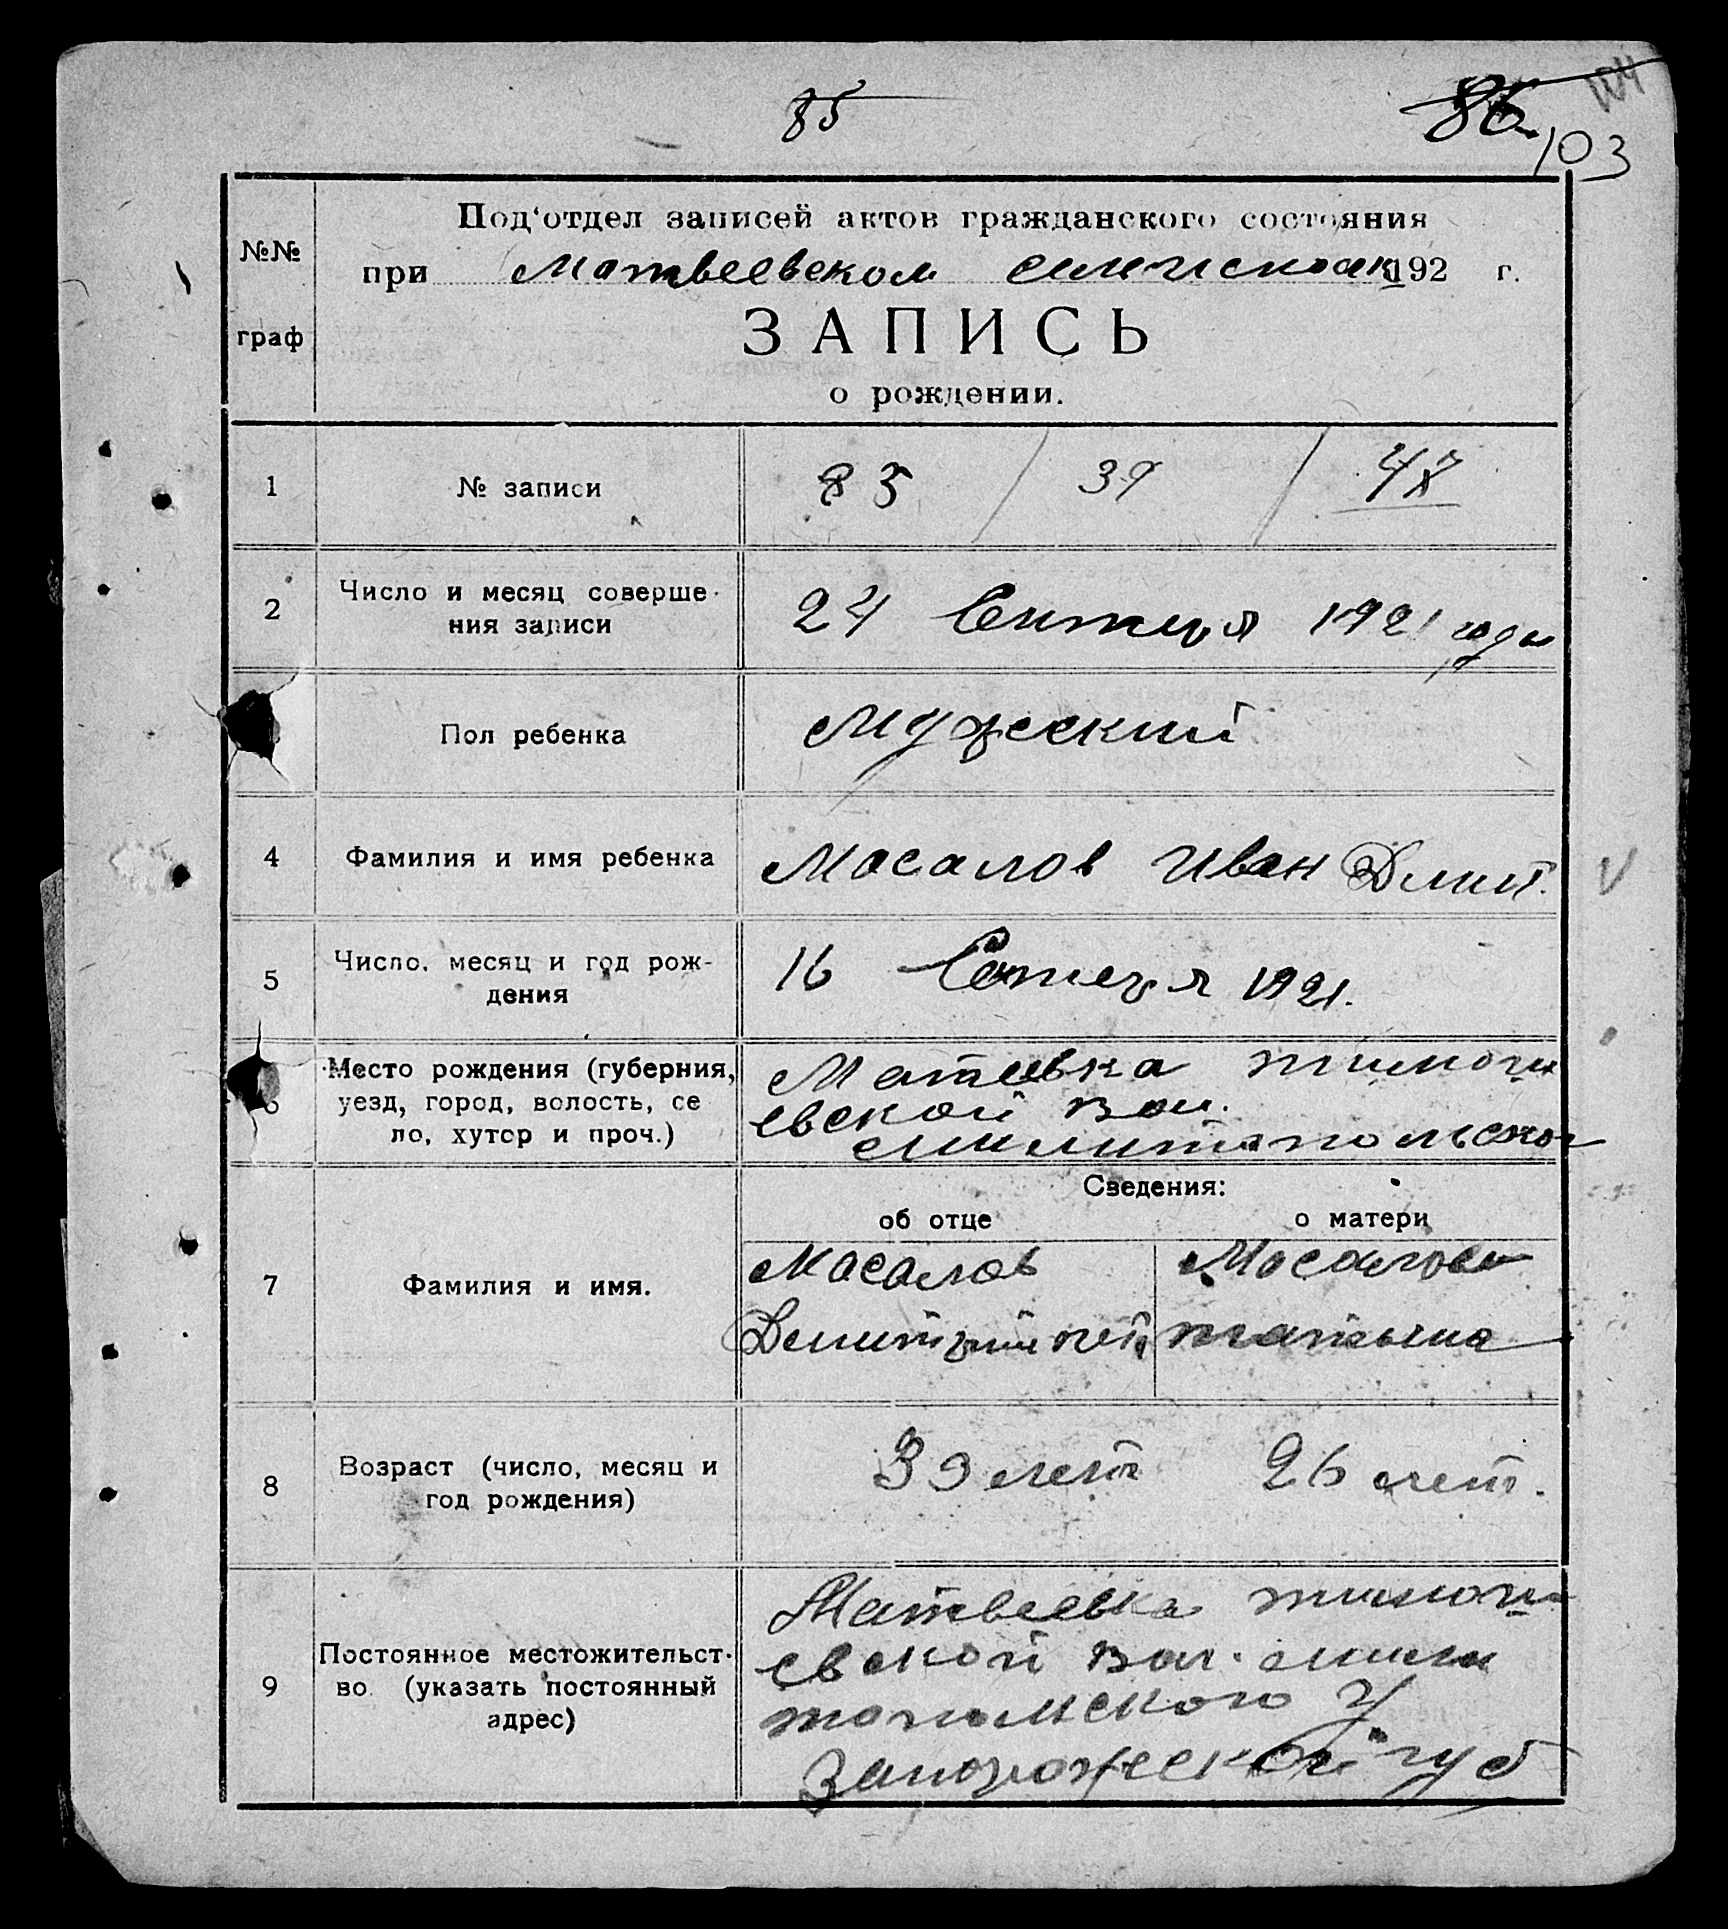 85
86
104
103
№№
граф
Под‘отдел записей актов гражданского состояния
при Матвеевском 192 г.
ЗАПИСЬ
о рождении.
1 № записи 83 / 39 / 47
2 Число и месяц соверше-
ния записи
24 Сентяря 1921 года
Пол ребенка Мужеский
4 Фамилия и имя ребенка Масалов Иван Дмит.
5 Число, месяц и год рож-
дения
16 1921.
6 Место рождения (губерния,
уезд, город, волость, се
ло, хутор и проч.)
Матвевка тимоши
евской вол.
милитопольског
Сведения:
об отце о матери
7 Фамилия и имя.
Масалов Масалова
Демитрий татьяна
8 Возраст (число, месяц и
год рождения)
39 лет 26 лет.
9 Постоянное местожительст-
во (указать постоянный
адрес)
Матвеевка тимоши
евской вол. мили
топольского у
Запорожеской губ